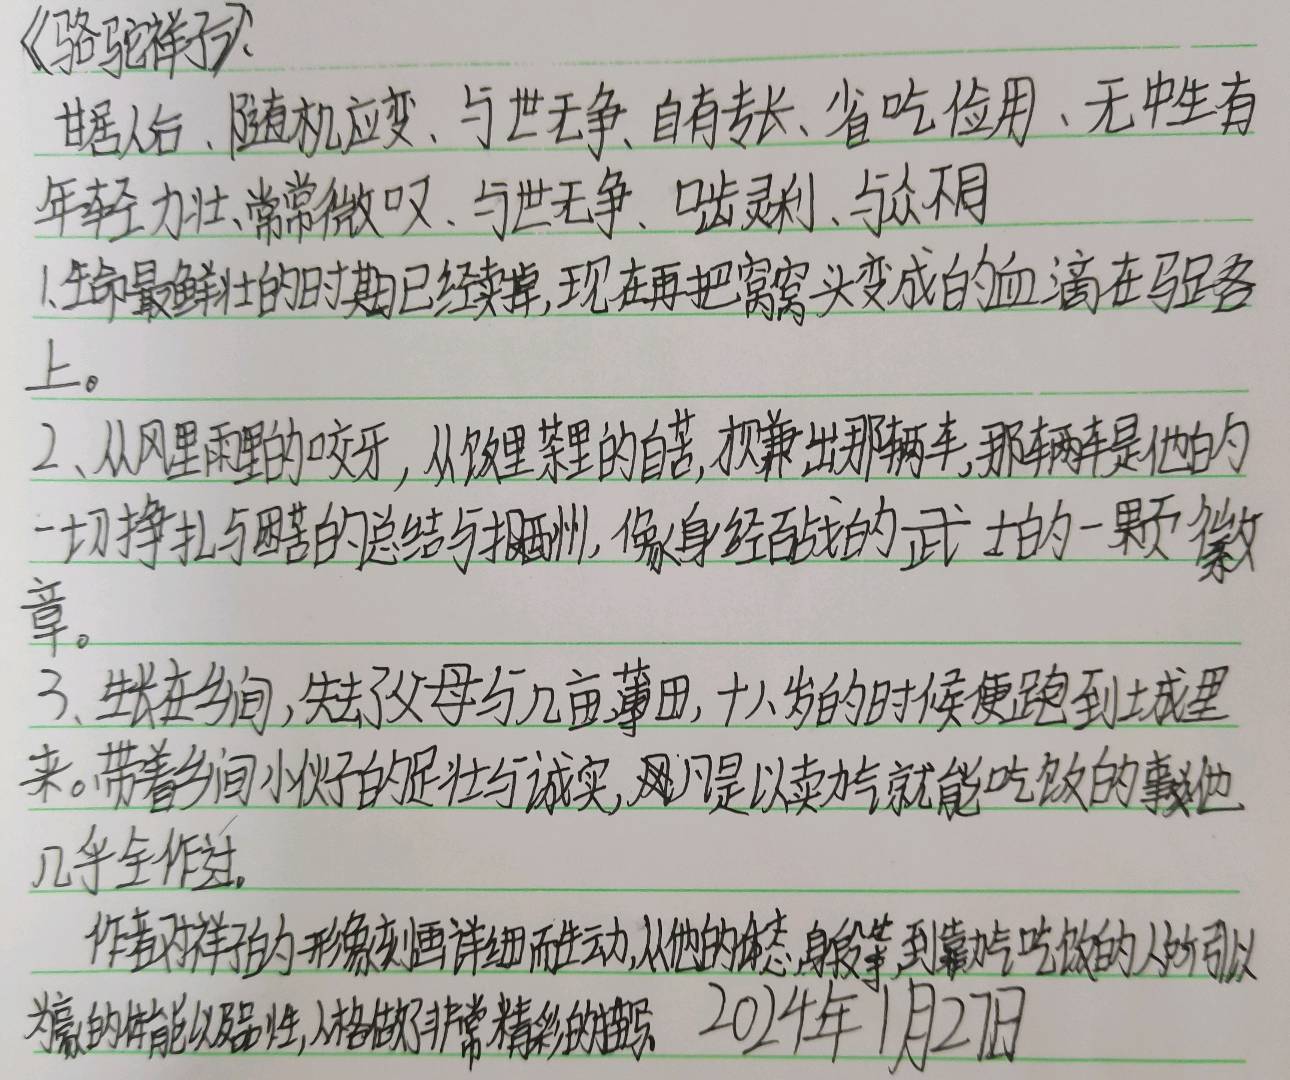 《骆驼祥子》:
甘居人后、随机应变、与世无争、自有专长、省吃俭用、无中生有
年轻力壮、常常微叹、与世无争、口齿灵利、与众不同
1.生命最鲜壮的时期已经卖掉,现在再把窝窝头变成的血滴在马路
上。
2、从风里雨里的咬牙,从饭里茶里的自苦,才赚出那辆车,那辆车是他的
一切挣扎与困苦的总结与报酬,像身经百战的武士的一颗徽
章。
3、生长在乡间,失去了父母与几亩薄田,十八岁的时候便跑到城里
来。带着乡间小伙子的足壮与诚实,凡是以卖力气就能吃饭的事他
几乎全作过。
作者对祥子的形象刻画详细而生动,从他的体态、身段等,到靠力气吃饭的人所引以
为豪的体能以及品性,人格做了非常精彩的描写 2024年1月27日